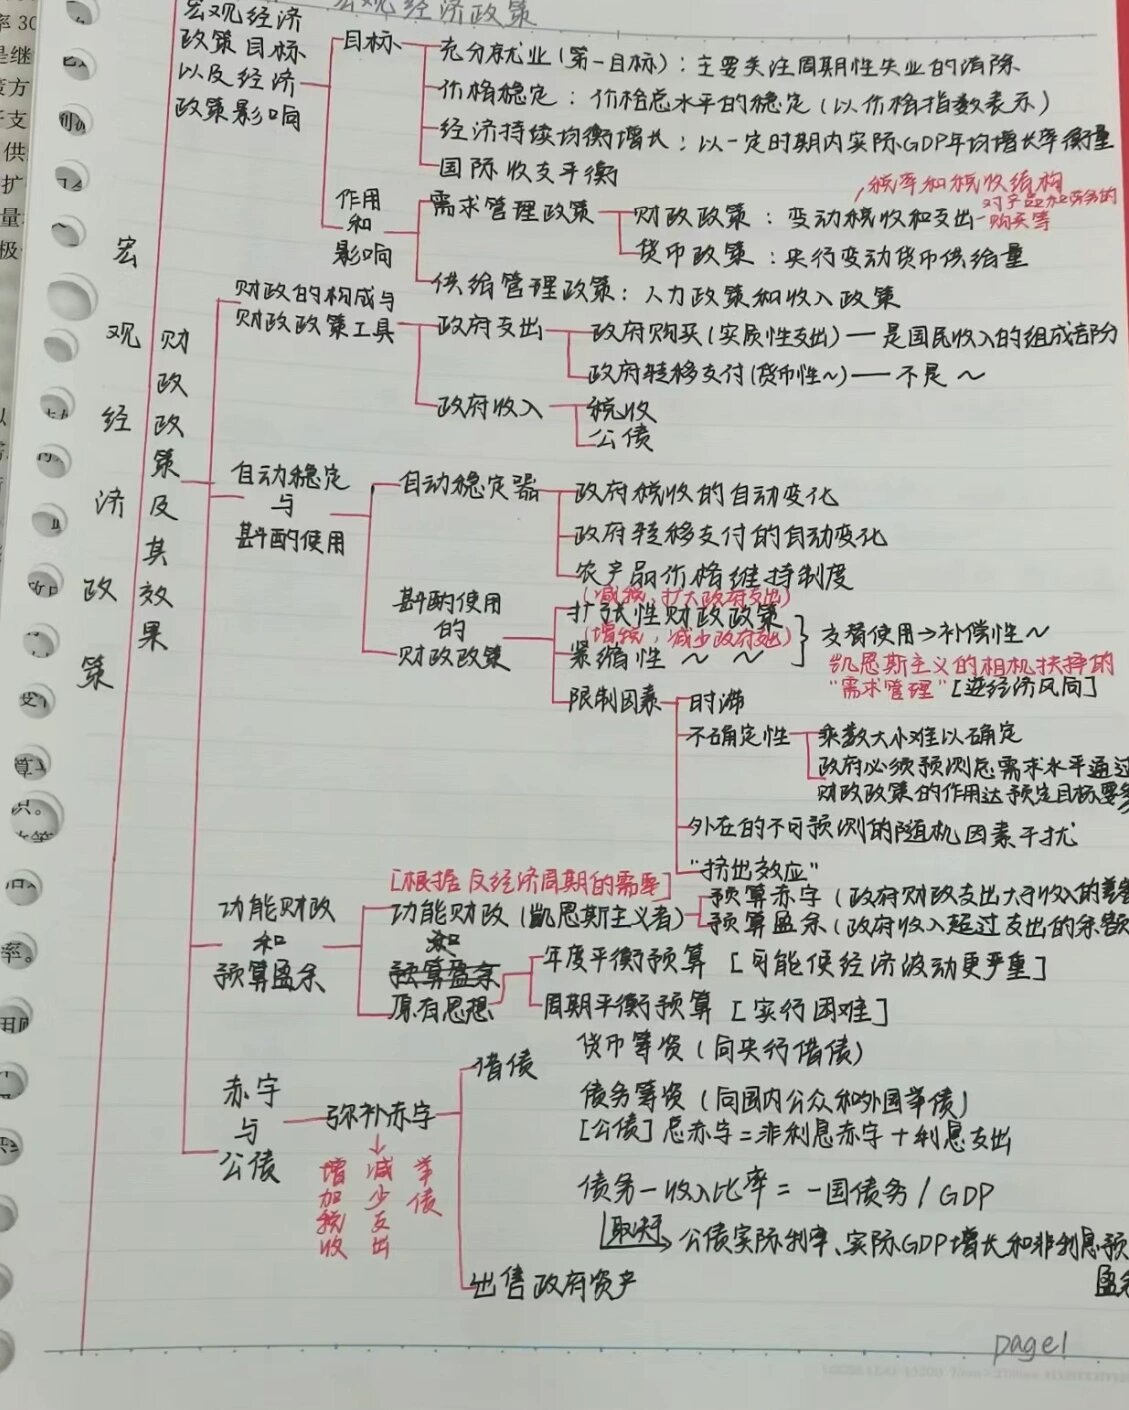 宏观经济政策
宏观经济
政策目标
以及经济
政策影响
目标
充分就业(第一目标)：主要关注周期性失业的消除
价格稳定：价格总水平的稳定(以价格指数表示)
经济持续均衡增长：以一定时期内实际GDP年均增长率衡量
国际收支平衡
作用
和
影响
需求管理政策
税率和税收结构
对产品和劳务的
购买等
财政政策：变动税收和支出
货币政策：央行变动货币供给量
供给管理政策：人力政策和收入政策
宏观经济政策
财政政策及其效果
财政的构成与
财政政策工具
政府支出
政府购买(实质性支出)—是国民收入的组成部分
政府转移支付(货币性～)—不是～
政府收入
税收
公债
自动稳定
与
斟酌使用
自动稳定器
政府税收的自动变化
政府转移支付的自动变化
农产品价格维持制度
斟酌使用
的
财政政策
(减税、扩大政府支出)
扩张性财政政策
(增税，减少政府支出)
紧缩性～～
交替使用→补偿性～
凯恩斯主义的相机抉择的
"需求管理"[逆经济风向]
限制因素
时滞
不确定性
乘数大小难以确定
政府必须预测总需求水平通过
财政政策的作用达预定目标要多
外在的不可预测的随机因素干扰
"挤出效应"
[根据反经济周期的需要]
功能财政
和
预算盈余
功能财政(凯恩斯主义者)
预算赤字(政府财政支出大于收入的差额
预算盈余(政府收入超过支出的余额
和
预算盈余
原有思想
年度平衡预算[可能使经济波动更严重]
周期平衡预算[实行困难]
赤字
与
公债
弥补赤字
增加税收
减少支出
举债
借债
货币筹资(向央行借债)
债务筹资(向国内公众和外国举债)
[公债]总赤字=非利息赤字+利息支出
债务—收入比率=一国债务/GDP
取决于
公债实际利率、实际GDP增长和非利息预
盈余
出售政府资产
page1